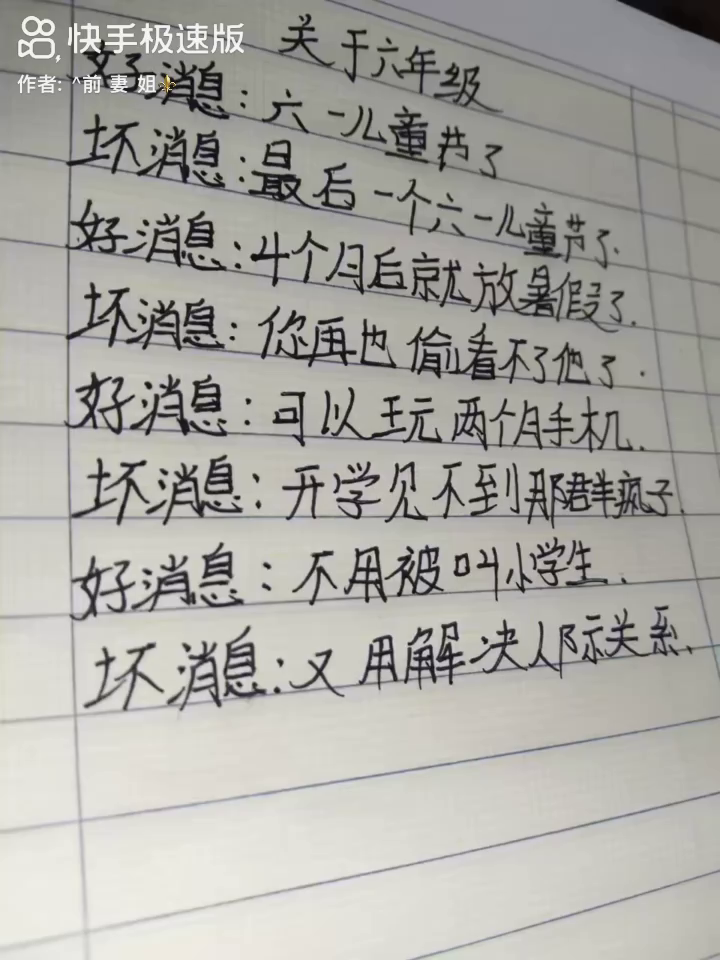 快手极速版
作者: ^前 妻 姐⚜️
关于六年级
好消息：六一儿童节了
坏消息：最后一个六一儿童节了.
好消息：4个月后就放暑假了.
坏消息：你再也偷看不了他了.
好消息：可以玩两个月手机.
坏消息：开学见不到那群疯子.
好消息：不用被叫小学生.
坏消息：又用解决人际关系.